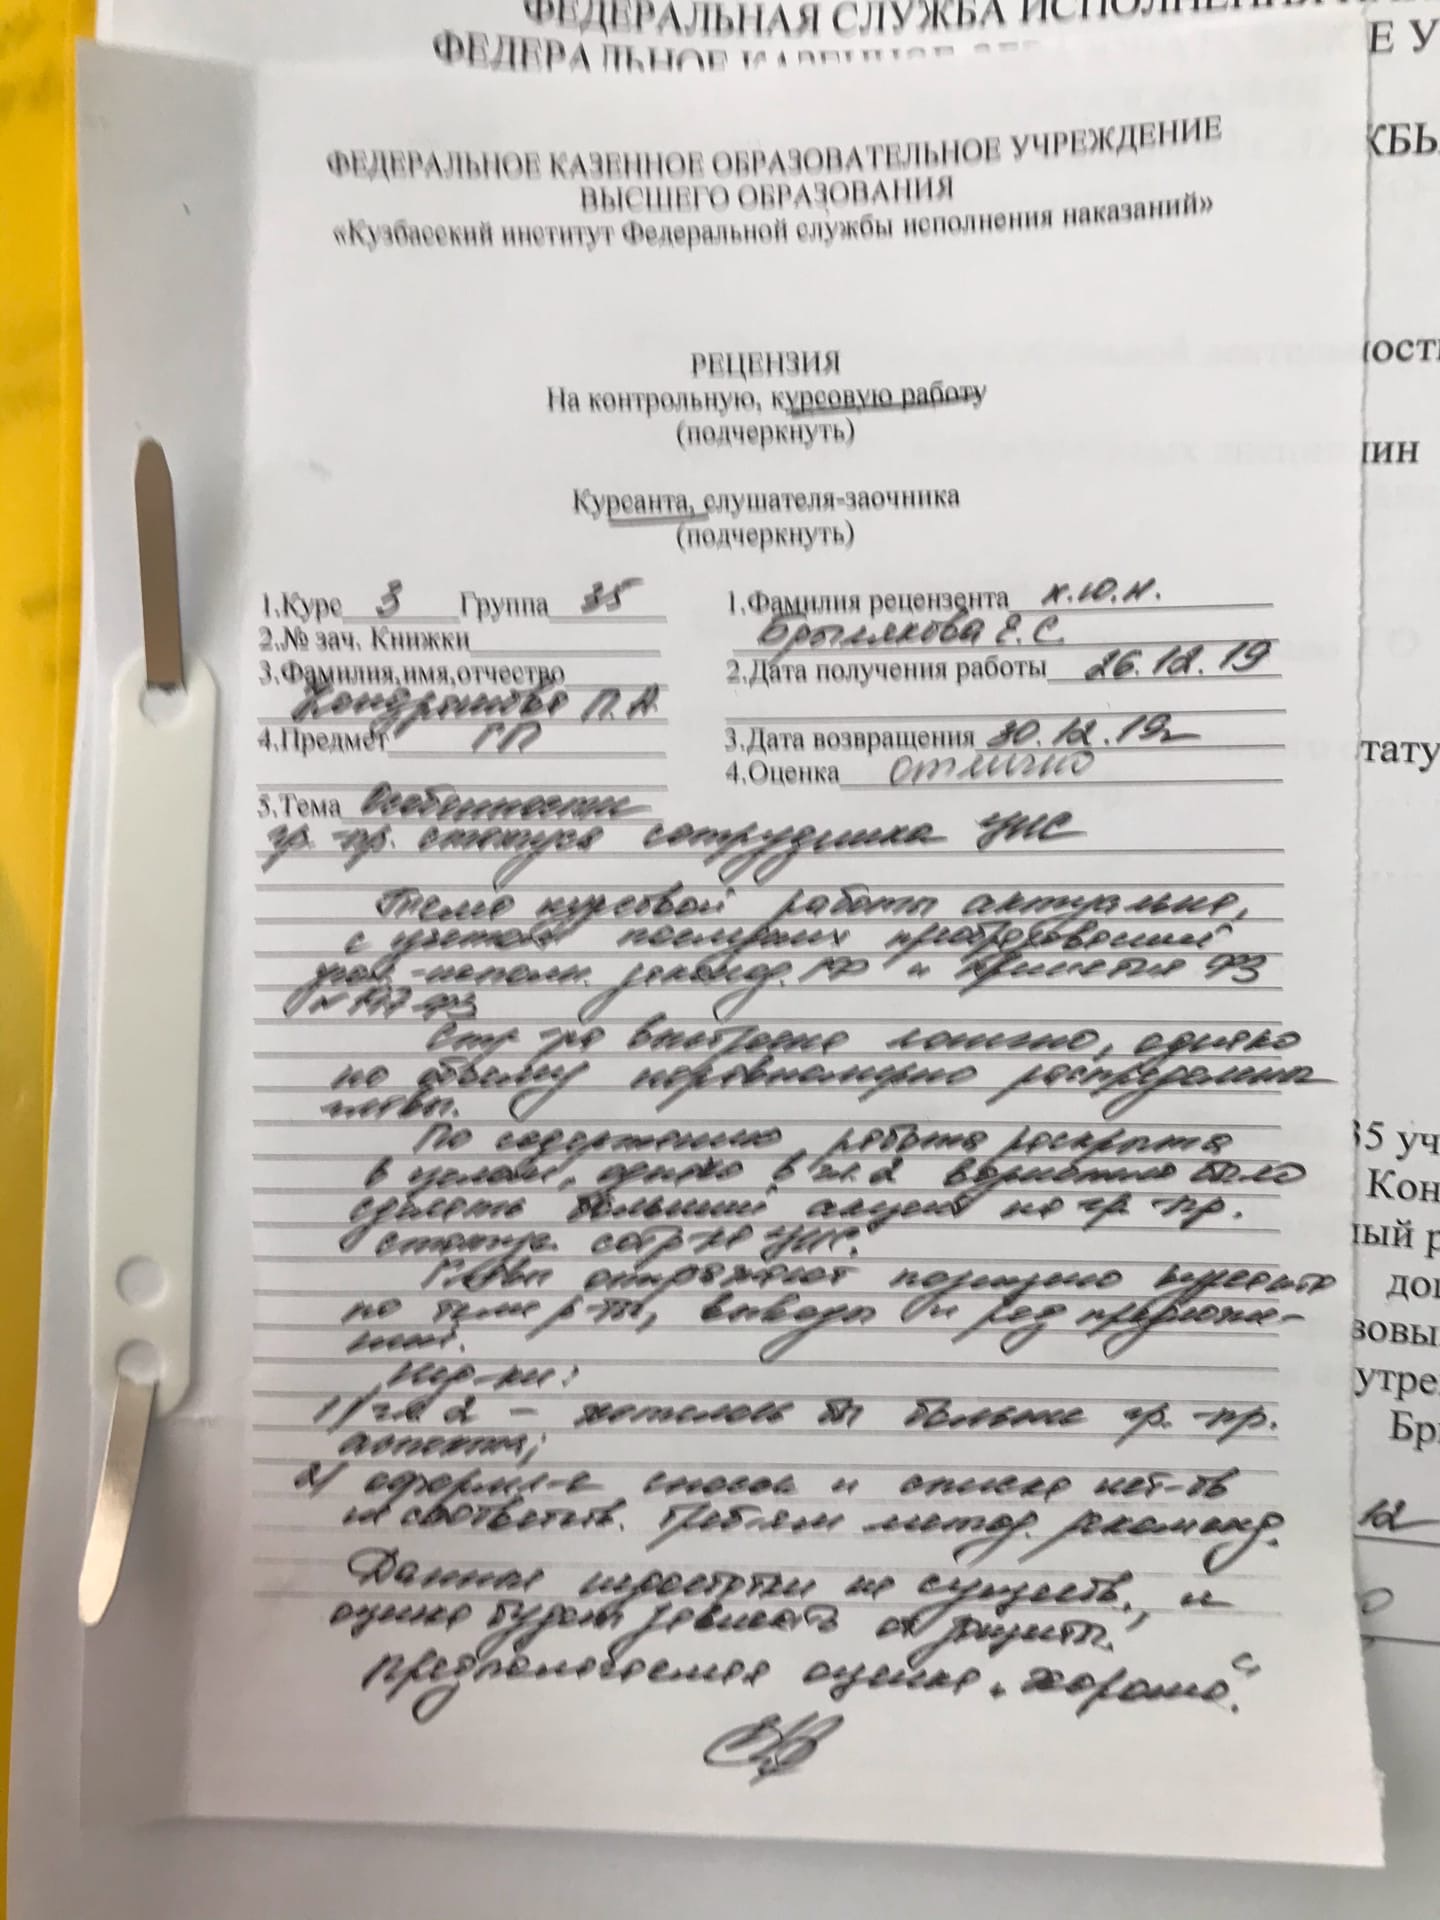 ФЕДЕРАЛЬНАЯ СЛУЖБА
ФЕДЕРАЛЬНОЕ
Е У
ФЕДЕРАЛЬНОЕ КАЗЕННОЕ ОБРАЗОВАТЕЛЬНОЕ УЧРЕЖДЕНИЕ
ВЫСШЕГО ОБРАЗОВАНИЯ
«Кузбасский институт Федеральной службы исполнения наказаний»
РЕЦЕНЗИЯ
На контрольную, курсовую работу
(подчеркнуть)
Курсанта, слушателя-заочника
(подчеркнуть)
1.Курс 3 Группа 35
2.№ зач. Книжки
3.Фамилия,имя,отчество
П.А.
4.Предмет ГП
5.Тема Особенности
гр.-пр. статуса сотрудника УИС
1.Фамилия рецензента к.ю.н.
Брылякова Е.С.
2.Дата получения работы 26.12.19
3.Дата возвращения 30.12.19г
4.Оценка отлично
Тема курсовой работы актуальна,
с учетом последних преобразований
уг.-исполн. законод. РФ и принятия ФЗ
№ 197-ФЗ
Стр-ра выстроена логично, однако
по объему неравномерно распределены
главы.
По содержанию работа раскрыта
в целом, однако в гл. 2 возможно было
сделать больший акцент на гр.-пр.
статус сотр-ка УИС.
Главы отражают позицию курсанта
по теме р-ты, выводы и ряд предложе-
ний.
Нед-ки:
1) гл 2 – хотелось бы больше гр.-пр.
аспекта;
2) оформл-е сносок и списка ист-в
не соответств. требован метод. рекоменд.
Данные недостатки не существ., и
оценка будет зависеть от защиты.
Предполагаемая оценка „хорошо“.
35 уч
Кон
ный р
утре
12